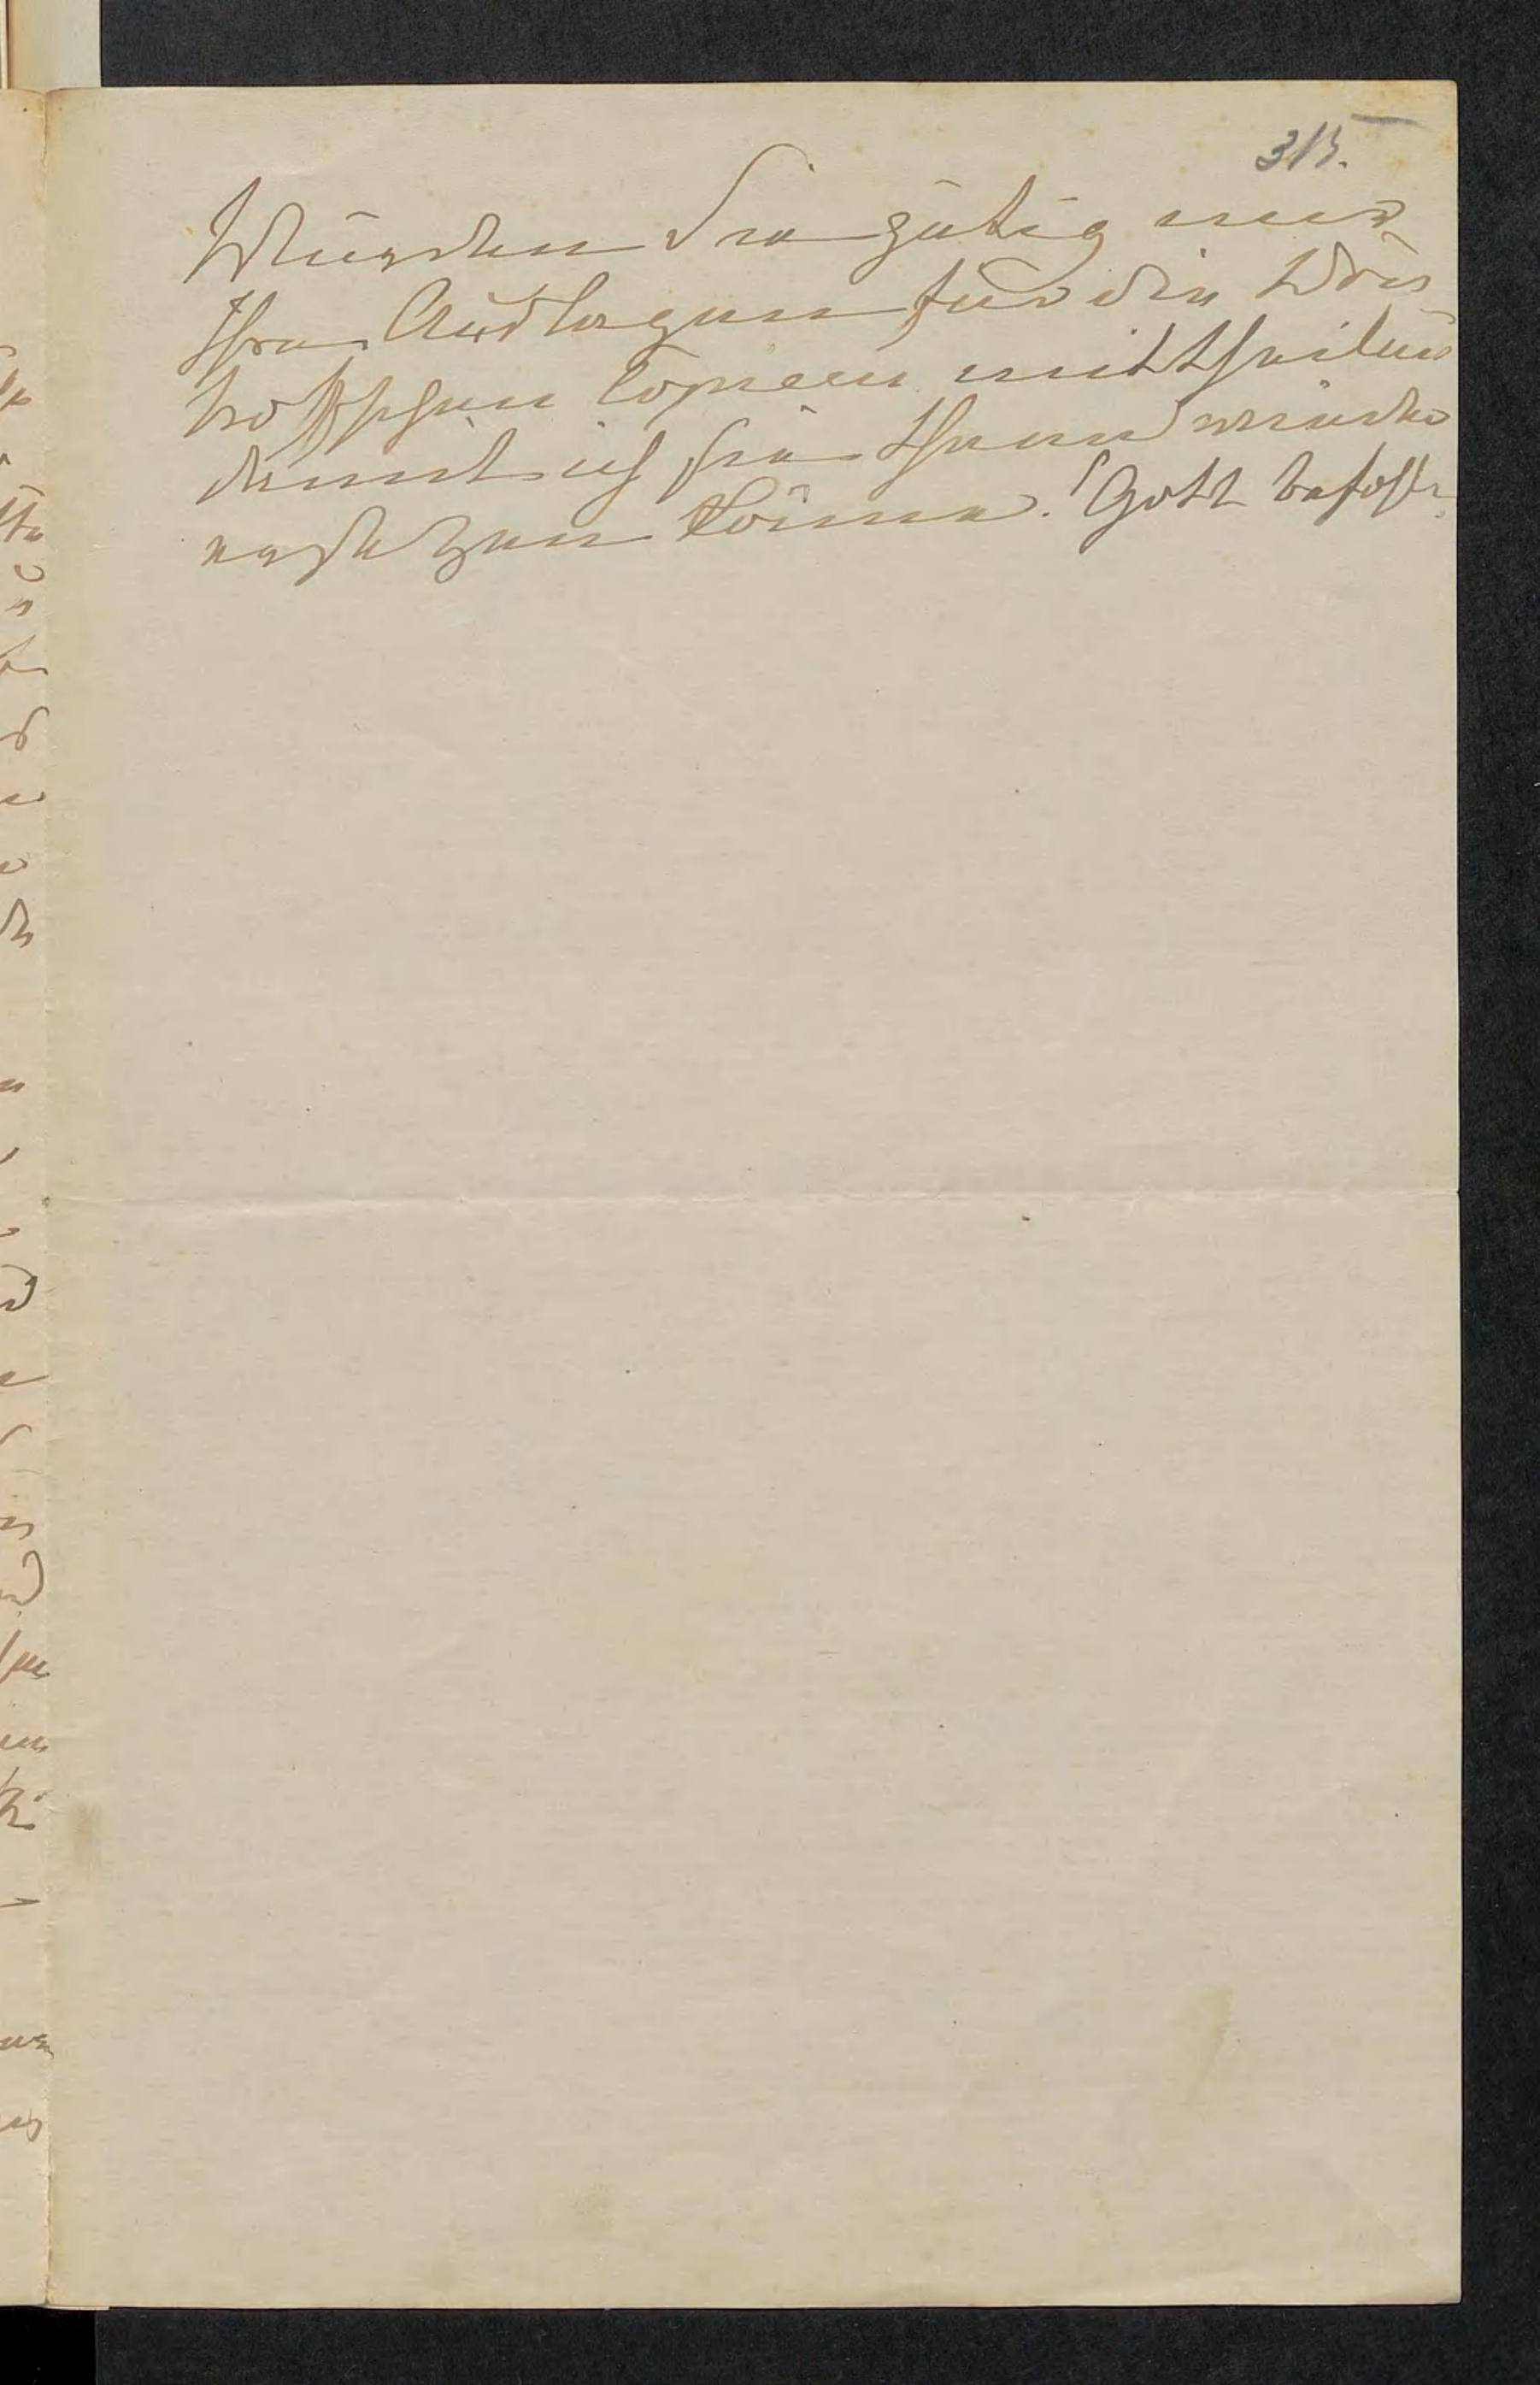 315.
Würden Sie gütig mir
Ihre Auslagen für die
Copieen mittheilen
damit ich sie Ihnen wieder
ersetzen könne. Gott befohlen